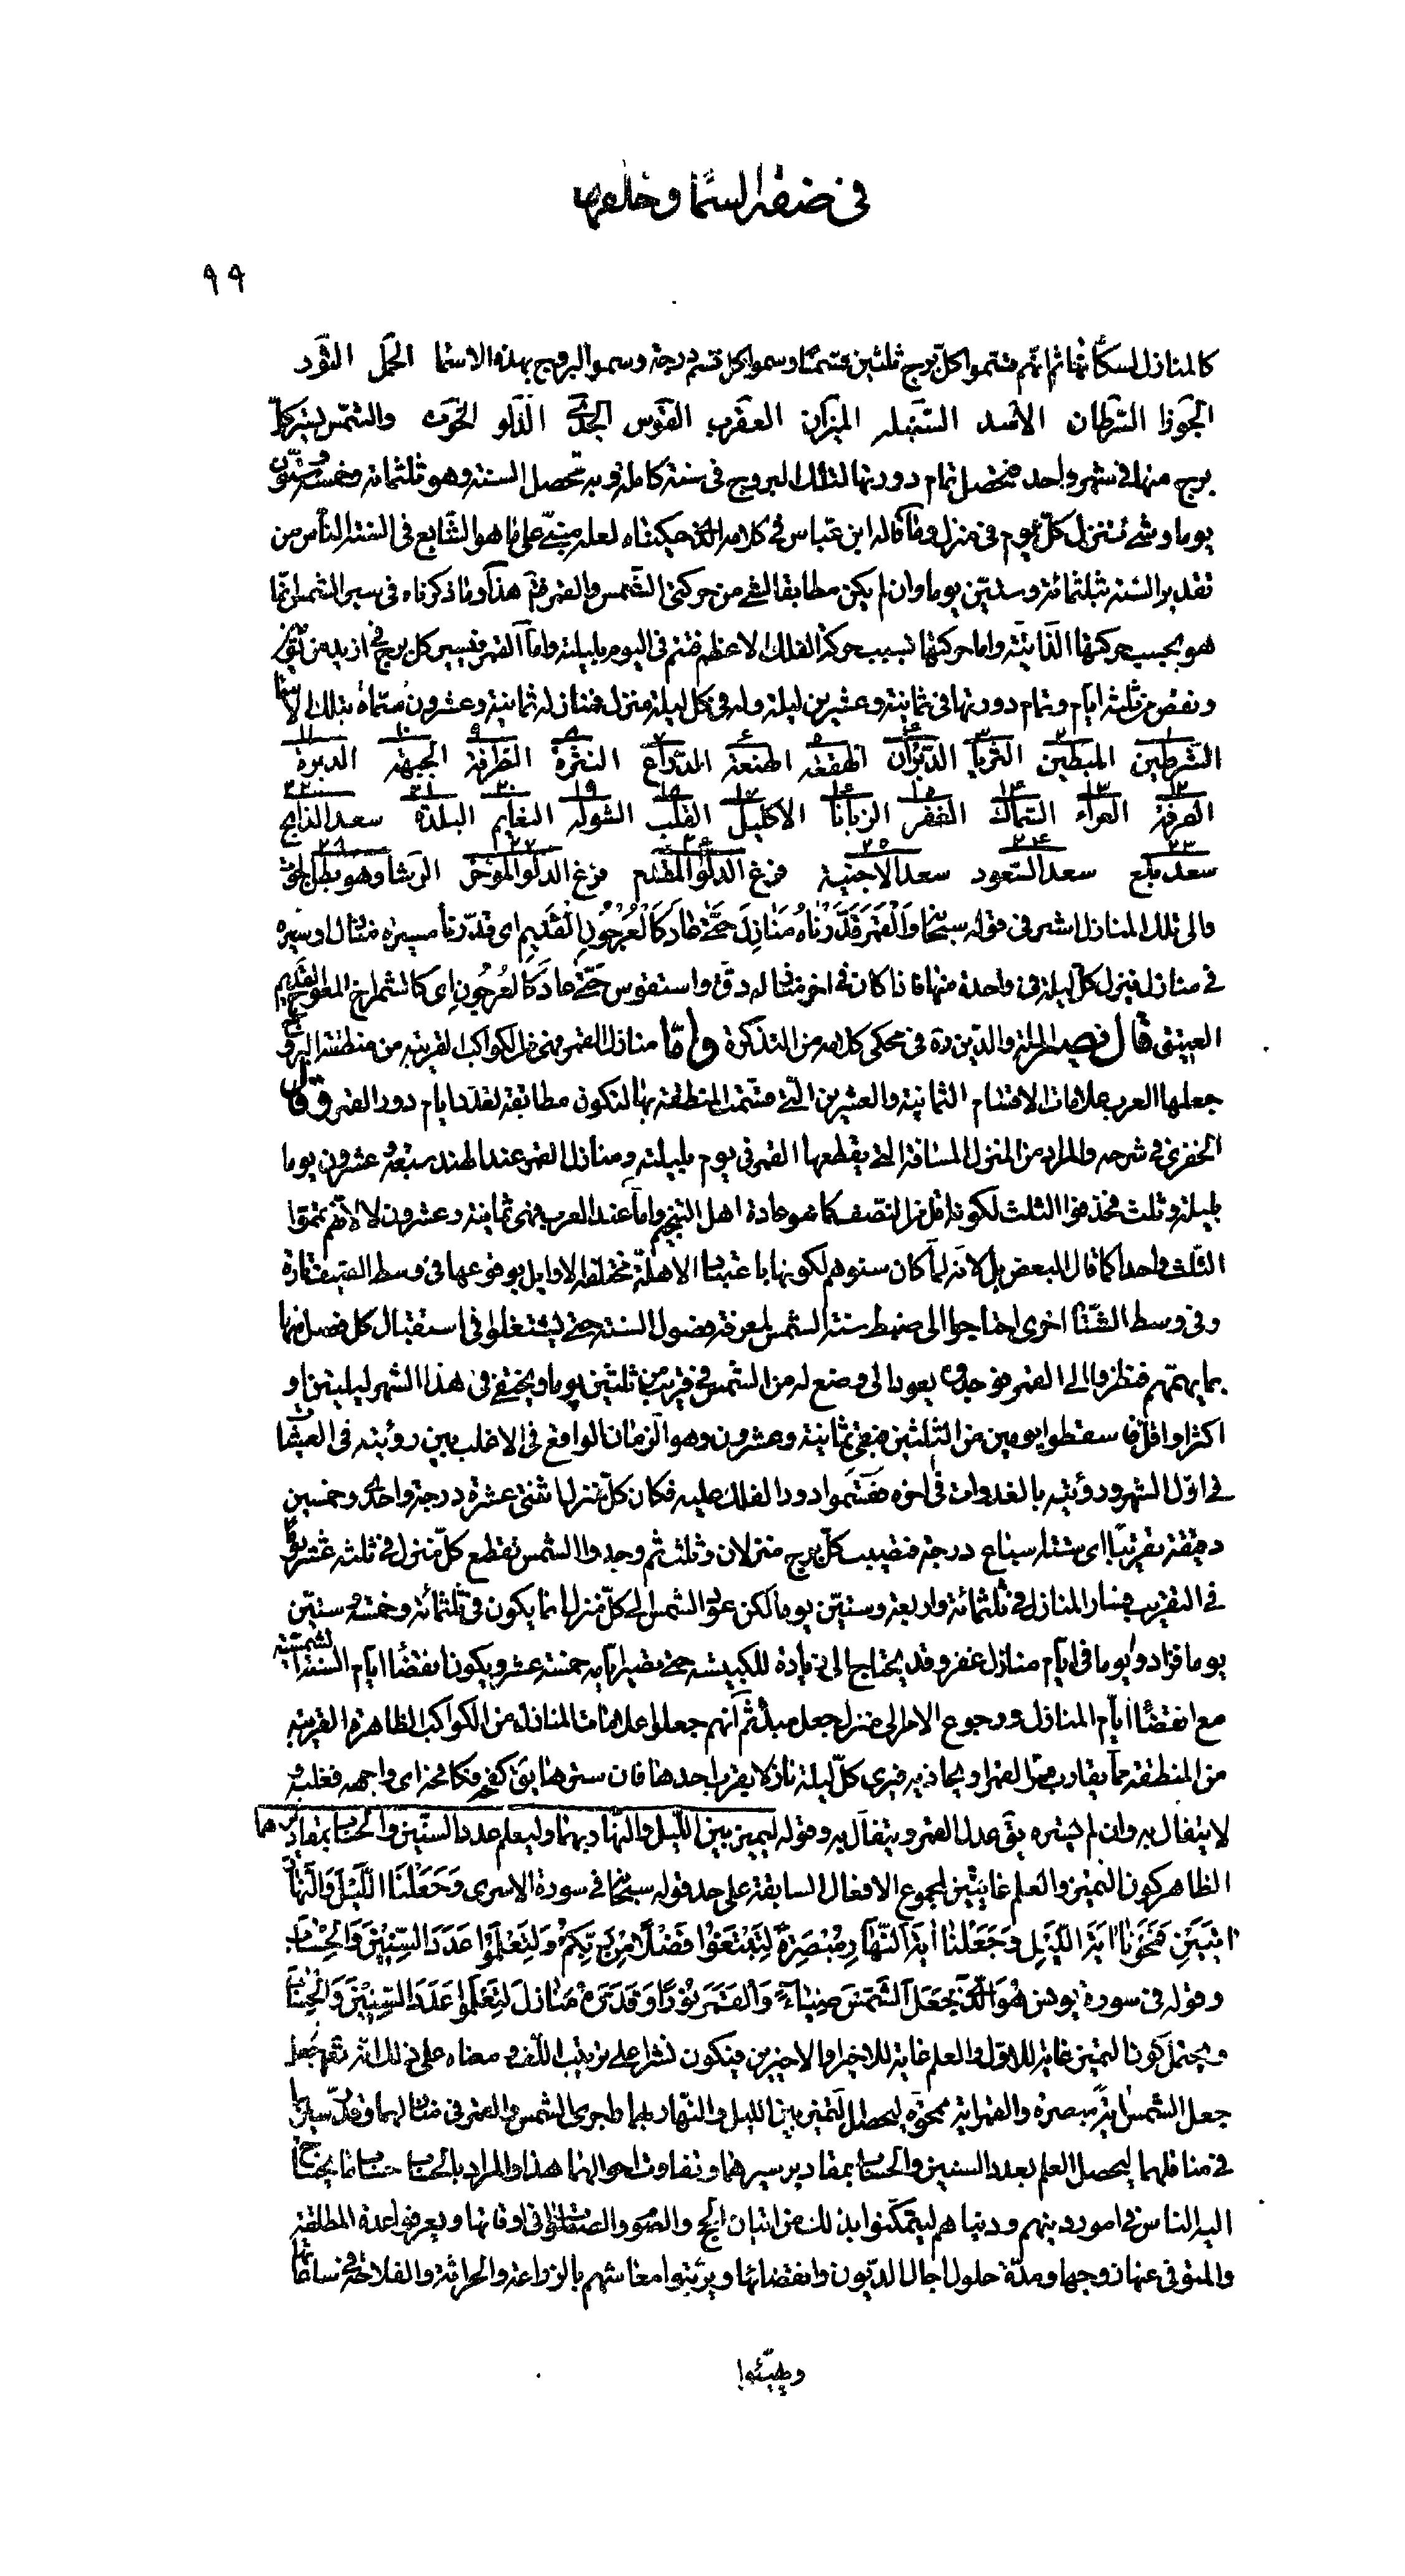 في صفة السماء وخلقها
٩٩
كالمنازل لسكانها ثم انهم قسموا كل برج ثلثين قسما وسموا كل قسم درجة وسموا البروج بهذه الاسما الحمل الثور
الجوزا السرطان الاسد السنبله الميزان العقرب القوس الجدى الدلو الحوت والشمس تسير كل
برج منها في شهر واحد فتحصل تمام دورتها لتلك البروج في سنة كاملة وبه تحصل السنة وهو ثلثمائة وخمسة وستون
يوما وشئ تنزل كل يوم في منزل وما قاله ابن عباس في كلامه الذي حكيناه لعله مبنيّ على ما هو الشايع في السنة الناس من
تقدير السنة بثلثمائة وستين يوما وان لم يكن مطابقا لشئ من حركتى الشمس والقمر هذا وما ذكرناه في سير الشمس انما
هو بحسب حركتها الذاتية واما حركتها بسبب حركة الفلك الاعظم فتتم في اليوم بليلته واما القمر فيسير كل برج في ازيد من يومين
ونقص من ثلثة ايام وتمام دورتها في ثمانية وعشرين ليلة وله في كل ليلة منزل فمنازله ثمانية وعشرون مسماة بتلك الاسما
١ ٢ ٣ ٤ ٥ ٦ ٧ ٨ ٩ ١٠ ١١
الشرطين البطين الثريا الدبران الهقعة الهنعة الذراع النثرة الطرفة الجبهة الدبرة
١٢ ١٣ ١٤ ١٥ ١٦ ١٧ ١٨ ١٩ ٢٠ ٢١ ٢٢
الصرفة العواء السماك الغفر الزبانا الاكليل القلب الشوله النعايم البلدة سعد الذابح
٢٣ ٢٤ ٢٥ ٢٦ ٢٧ ٢٨
سعد بلع سعد السعود سعد الاخبية فرغ الدلو المقدم فرغ الدلو الموخر الرشا وهو بطن الحوت
والى تلك المنازل اشير في قوله سبحانه وَالْقَمَرَ قَدَّرْنَاهُ مَنَازِلَ حَتَّى عَادَ كَالْعُرْجُونِ الْقَدِيمِ اى قدّرنا مسيره منازل او سيره
في منازل فينزل كل ليلة في واحدة منها فاذا كان في اخر منازله دق واستقوس حتى عاد كالعرجون اى كالشمراخ المعوج القديم
العتيق قال نصير الملة والدين ره في محكى كلامه من التذكرة واما منازل القمر فهي من الكواكب القريبة من منطقة البروج
جعلها العرب علامات الاقسام الثمانية والعشرين التي قسمت المنطقة بها لتكون مطابقة لعدد ايام دور القمر وقال
الخفري في شرحه والمراد من المنزل المسافة التي يقطعها القمر في يوم بليلته ومنازل القمر عند الهند سبعة وعشرون يوما
بليلة وثلث فحذفوا الثلث لكونه اقل من النصف كما هو عادة اهل التنجيم واما عند العرب فهي ثمانية وعشرون لا لانهم تمموا
الثلث واحدا كما قال البعض بل لانه لما كان سنوهم لكونها باعتبار الاهلة مختلفة الاوايل بوقوعها في وسط الصيف تارة
وفي وسط الشتا اخرى احتاجوا الى ضبط سنة الشمس لمعرفة فصول السنة حتى يشتغلوا في استقبال كل فصل منها
بما يهمهم فنظروا الى القمر فوجدوه يعود الى وضع له من الشمس في قريب من ثلثين يوما ويختفى في هذا الشهر ليلتين او
اكثر او اقل فاسقطوا يومين من الثلثين فبقى ثمانية وعشرون وهو الزمان الواقع في الاغلب بين رؤيته في العشيات
في اول الشهر ورؤيته بالغدوات في اخره فقسموا دور الفلك عليه فكان كل منزل اثنتى عشرة درجة واحدى وخمسين
دقيقة تقريبا اى ستة اسباع درجة فنصيب كل برج منزلان وثلث ثم وجدوا الشمس تقطع كل منزل في ثلثة عشر يوما
في التقريب فصار المنازل في ثلثمائة واربعة وستين يوما لكن عود الشمس الى كل منزل انما يكون في ثلثمائة وخمسة وستين
يوما فزادوا يوما في ايام منازل غفر وقد يحتاج الى زيادة للكبيسة حتى تصير ايامه خمسة عشر ويكون انقضا ايام السنة الشمسية
مع انقضا ايام المنازل ورجوع الامر الى منزل جعل مبدأ ثم انهم جعلوا علامات المنازل من الكواكب الظاهرة القريبة
من المنطقة مما يقارب ممر القمر او يحاذيه فيرى كل ليلة نازلا بقرب احدها فان سترها يق كفحه فكافحه اى واجهه فغلبه و
لا يتفأل به وان لم يستره يق عدل القمر ويتفأل به وقوله ليميز بين الليل والنهار بهما وليعلم عدد السنين والحساب بمقاديرهما
الظاهر كون التميز والعلم غايتين لمجموع الافعال السابقة على حد قوله سبحانه في سورة الاسرى وَجَعَلْنَا اللَّيْلَ وَالنَّهَارَ
آيَتَيْنِ فَمَحَوْنَا آيَةَ اللَّيْلِ وَجَعَلْنَا آيَةَ النَّهَارِ مُبْصِرَةً لِتَبْتَغُوا فَضْلًا مِنْ رَبِّكُمْ وَلِتَعْلَمُوا عَدَدَ السِّنِينَ وَالْحِسَابَ
وقوله في سورة يونس هُوَ الَّذِي جَعَلَ الشَّمْسَ ضِيَاءً وَالْقَمَرَ نُورًا وَقَدَّرَهُ مَنَازِلَ لِتَعْلَمُوا عَدَدَ السِّنِينَ وَالْحِسَابَ
ويحتمل كون التميز غاية للاول والعلم غاية للاخير او الاخيرين فيكون نشرا على ترتيب اللف و معناه على ذلك انه تعالى
جعل الشمس اية مبصرة والقمر اية ممحوّة ليحصل التميز بين الليل والنهار بهما واجرى الشمس والقمر في مناقلهما وقدر سيرهما
في مناقلهما ليحصل العلم بعدد السنين والحساب بمقادير سيرهما وتفاوت احوالهما هذا والمراد بالحساب حساب ما يحتاج
اليه الناس في امور دينهم ودنياهم ليتمكنوا بذلك من اتيان الحج والصوم والصلوات في اوقاتها ويعرفوا عدة المطلقة
والمتوفى عنها زوجها ومدة حلول اجال الديون وانقضائها ويرتبوا معاشهم بالزراعة والحراثة والفلاحة في ساعاتها
وطيّبوا